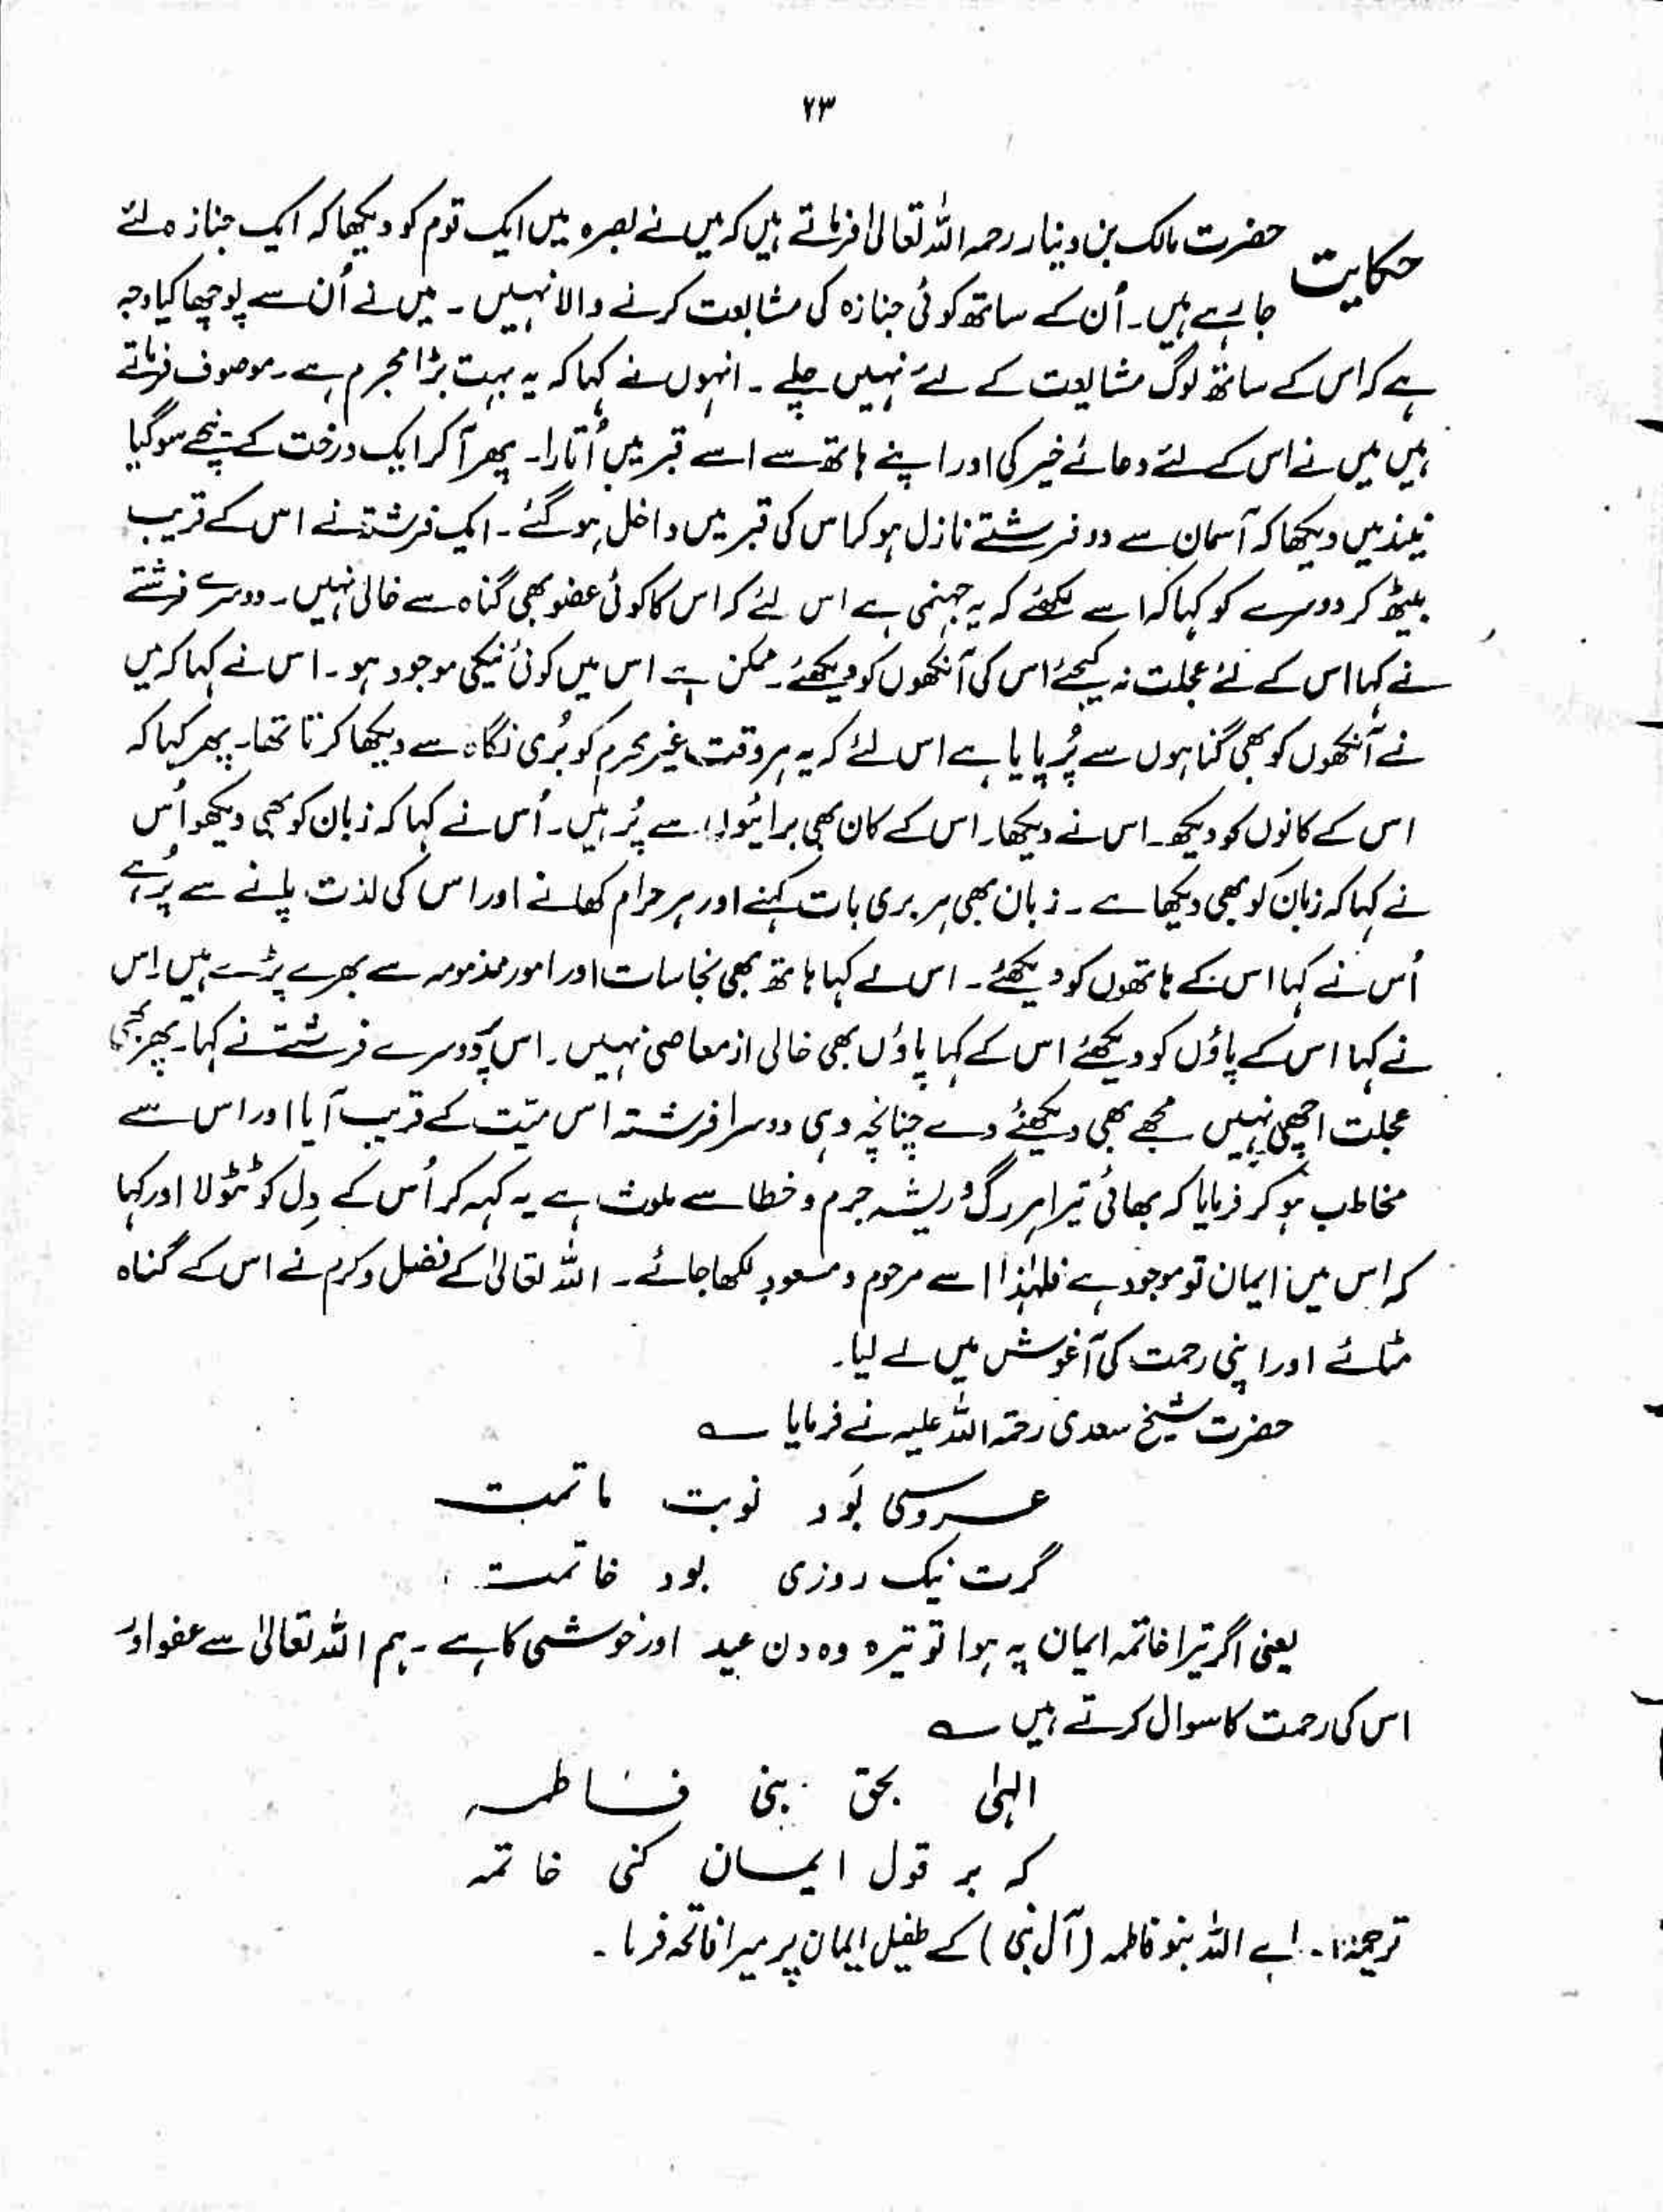 ۲۳
حکایت حضرت مالک بن دینار رحمہ اللہ تعالیٰ فرماتے ہیں کہ میں نے بصرہ میں ایک قوم کو دیکھا کہ ایک جنازہ لئے
جارہے ہیں۔ اُن کے ساتھ کوئی جنازہ کی مشابعت کرنے والا نہیں۔ میں نے اُن سے پوچھا کیا وجہ
ہے کہ اس کے ساتھ لوگ مشایعت کے لئے نہیں چلے۔ انہوں نے کہا کہ یہ بہت بڑا مجرم ہے۔ موصوف فرماتے
ہیں میں نے اس کے لئے دعائے خیر کی اور اپنے ہاتھ سے اسے قبر میں اُتارا۔ پھر آکر ایک درخت کے نیچے سو گیا
نیند میں دیکھا کہ آسمان سے دو فرشتے نازل ہو کر اس کی قبر میں داخل ہو گئے۔ ایک فرشتہ نے اس کے قریب
بیٹھ کر دوسرے کو کہا کہ اسے لکھئے کہ یہ جہنمی ہے اس لئے کہ اس کا کوئی عضو بھی گناہ سے خالی نہیں۔ دوسرے فرشتے
نے کہا اس کے لئے عجلت نہ کیجئے اس کی آنکھوں کو دیکھئے۔ ممکن ہے اس میں کوئی نیکی موجود ہو۔ اس نے کہا کہ میں
نے آنکھوں کو بھی گناہوں سے پُر پایا ہے اس لئے کہ یہ ہر وقت غیر محرم کو بُری نگاہ سے دیکھا کرتا تھا۔ پھر کہا کہ
اس کے کانوں کو دیکھ۔ اس نے دیکھا۔ اس کے کان بھی برائیوں سے پُر ہیں۔ اُس نے کہا کہ زبان کو بھی دیکھو اُس
نے کہا کہ زبان کو بھی دیکھا ہے۔ زبان بھی ہر بری بات کہنے اور ہر حرام کھانے اور اس کی لذت پانے سے پُر ہے
اُس نے کہا اس کے ہاتھوں کو دیکھئے۔ اس نے کہا ہاتھ بھی نجاسات اور امور مذمومہ سے بھرے پڑے ہیں اِس
نے کہا اس کے پاؤں کو دیکھئے اس کے کہا پاؤں بھی خالی از معاصی نہیں۔ اس پر دوسرے فرشتے نے کہا۔ پھر بھی
عجلت اچھی نہیں مجھے بھی دیکھنے دے چنانچہ وہی دوسرا فرشتہ اس میّت کے قریب آیا اور اس سے
مخاطب ہو کر فرمایا کہ بھائی تیرا ہر رگ و ریشہ جرم و خطا سے ملوث ہے یہ کہہ کر اُس کے دِل کو ٹٹولا اور کہا
کہ اس میں ایمان تو موجود ہے فلہٰذا اسے مرحوم و مسعود لکھا جائے۔ اللہ تعالیٰ کے فضل و کرم نے اس کے گناہ
مٹائے اور اپنی رحمت کی آغوش میں لے لیا۔
حضرت شیخ سعدی رحمۃ اللہ علیہ نے فرمایا ؎
عروسی بَود نوبت ماتمت
گرت نیک روزی بود خاتمت
یعنی اگر تیرا خاتمہ ایمان پہ ہوا تو تیرہ وہ دن عید اور خوشی کا ہے۔ ہم اللہ تعالیٰ سے عفو اور
اس کی رحمت کا سوال کرتے ہیں ؎
الٰہی بحق بنی فاطمہ
کہ بر قول ایمان کنی خاتمہ
ترجمہ:۔ اے اللہ بنو فاطمہ (آل نبی) کے طفیل ایمان پر میرا فاتحہ فرما۔